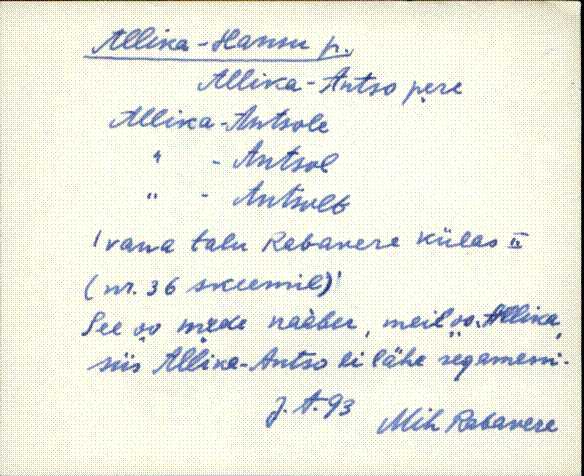 Allika-Hansu p.
Allika-Antso pere
Allika-Antsole
" - Antsol
" - Antsolt
'vana talu Rabavere külas II
(nr. 36 skeemil)'
See oo mede naaber, meil oo Allika,
siis Allika-Antso ei lähe segamemi.
J. A. 93
Mih Rabavere